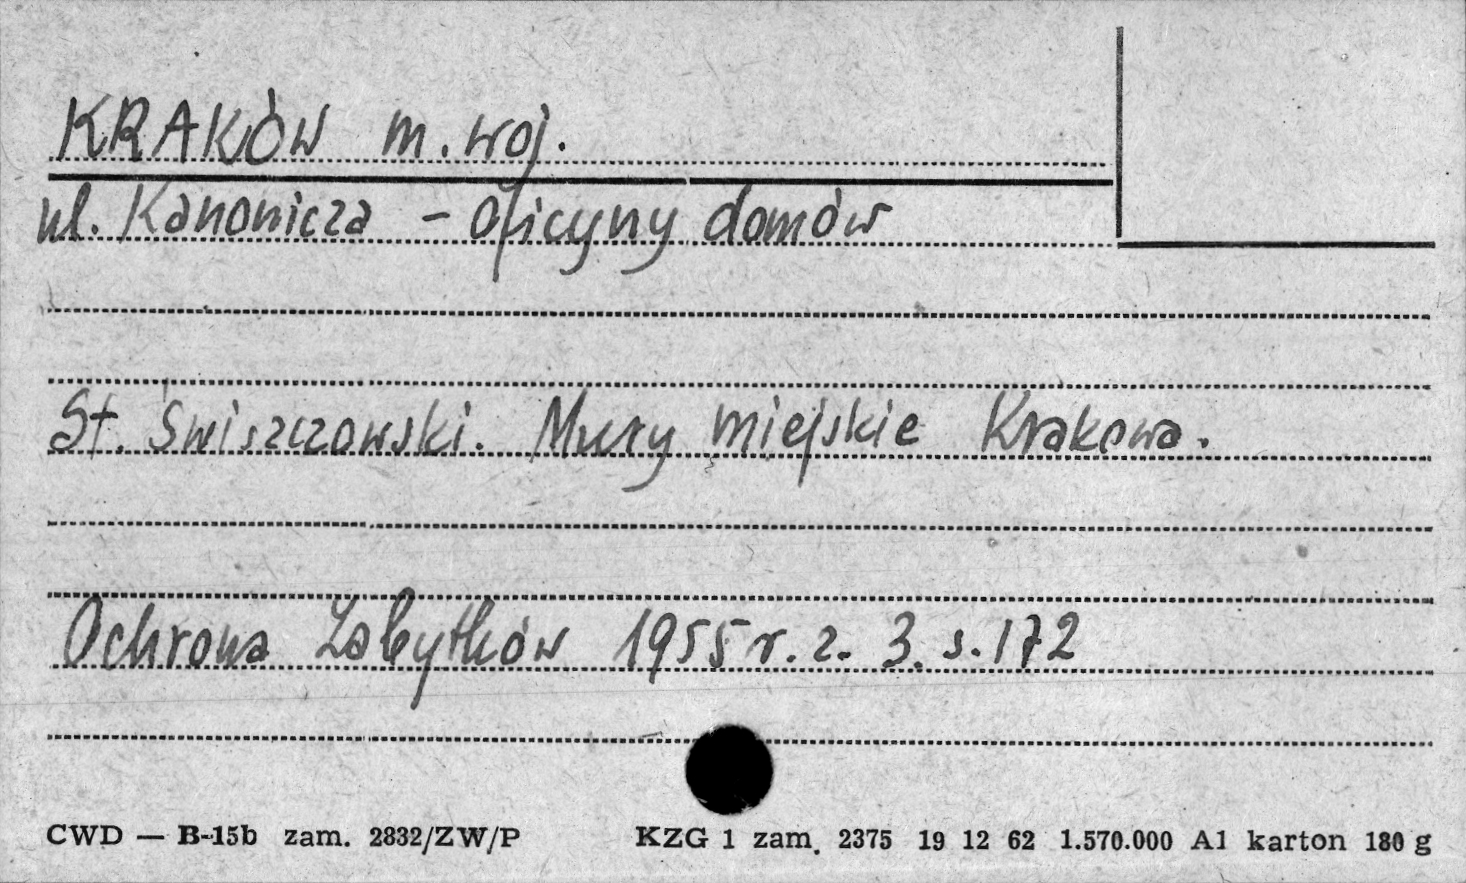 KRAKÓW m. woj.
ul. Kanonicza - oficyny domów
St. Świszczowski. Mury miejskie Krakowa.
Ochrona Zabytków 1955 r. z. 3. s. 172
CWD — B-15b zam. 2832/ZW/P KZG 1 zam. 2375 19 12 62 1.570.000 A1 karton 180 g